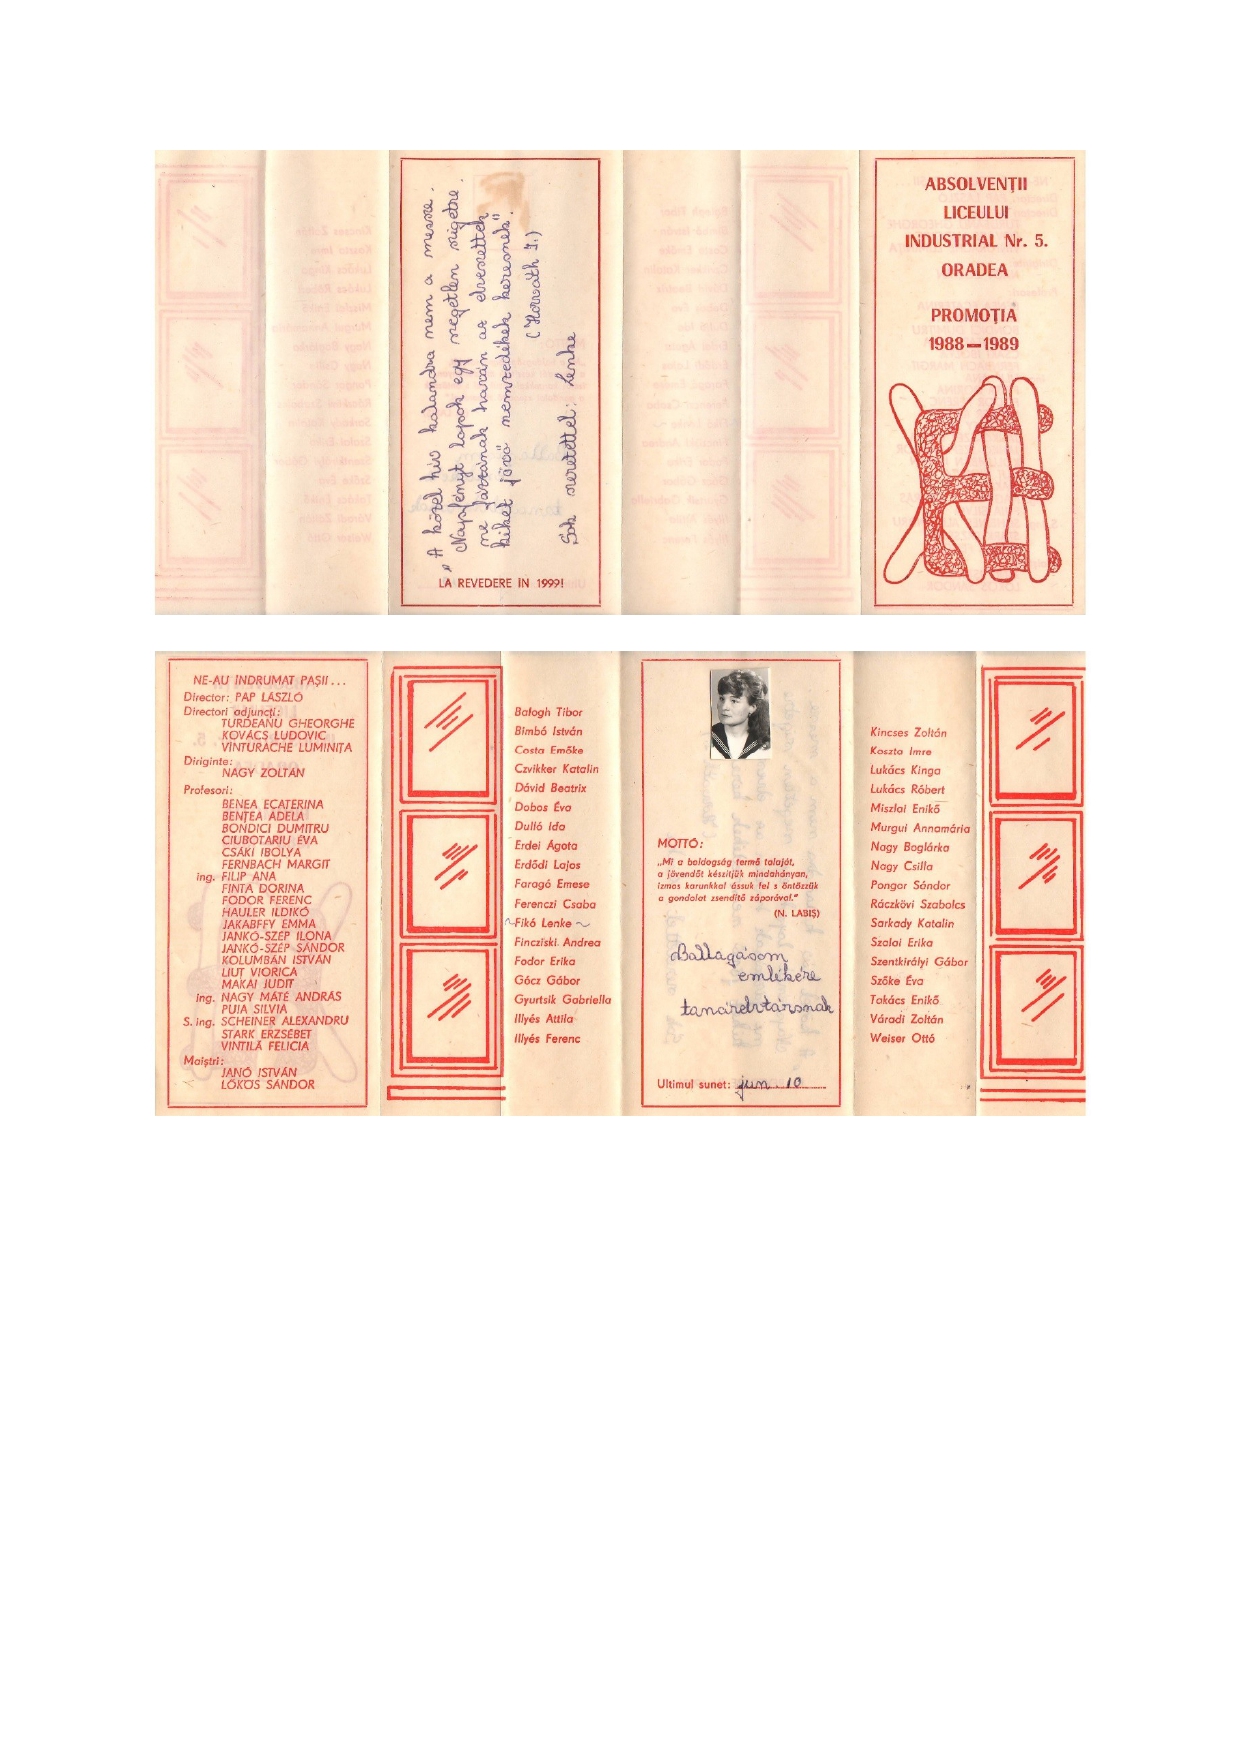 „A közel hív kalandra nem a messze.
Napfényt lopok egy szegetlen szigetre.
ne játszanak harán az elveszettek
kiket jövő nemzedékek keresnek”.
(Horváth I.)
Sok szeretettel: Lenke
LA REVEDERE IN 1999!
ABSOLVENȚII
LICEULUI
INDUSTRIAL Nr. 5.
ORADEA
PROMOȚIA
1988—1989
NE-AU INDRUMAT PAȘII...
Director: PAP LÁSZLÓ
Directori adjuncți:
TURDEANU GHEORGHE
KOVÁCS LUDOVIC
VINTURACHE LUMINIȚA
Diriginte:
NAGY ZOLTÁN
Profesori:
BENEA ECATERINA
BENȚEA ADELA
BONDICI DUMITRU
CIUBOTARIU ÉVA
CSÁKI IBOLYA
FERNBACH MARGIT
ing. FILIP ANA
FINTA DORINA
FODOR FERENC
HAULER ILDIKÓ
JAKABFFY EMMA
JANKÓ-SZÉP ILONA
JANKÓ-SZÉP SÁNDOR
KOLUMBÁN ISTVÁN
LIUT VIORICA
MAKAI JUDIT
ing. NAGY MÁTÉ ANDRÁS
PUIA SILVIA
S. ing. SCHEINER ALEXANDRU
STARK ERZSÉBET
VINTILĂ FELICIA
Maiștri:
JANÓ ISTVÁN
LŐKÖS SÁNDOR
Balogh Tibor
Bimbó István
Costa Emőke
Czvikker Katalin
Dávid Beatrix
Dobos Éva
Dulló Ida
Erdei Ágota
Erdődi Lajos
Faragó Emese
Ferenczi Csaba
~Fikó Lenke~
Fincziski Andrea
Fodor Erika
Gócz Gábor
Gyurtsik Gabriella
Illyés Attila
Illyés Ferenc
MOTTÓ:
„Mi a boldogság termő talaját,
a jövendőt készítjük mindahányan,
izmos karunkkal ássuk fel s öntözzük
a gondolat zsendítő záporával.”
(N. LABIȘ)
Ballagásom
emlékére
tanárelvtársnak
Ultimul sunet: jun. 10
Kincses Zoltán
Koszta Imre
Lukács Kinga
Lukács Róbert
Miszlai Enikő
Murgui Annamária
Nagy Boglárka
Nagy Csilla
Pongor Sándor
Ráczkövi Szabolcs
Sarkady Katalin
Szalai Erika
Szentkirályi Gábor
Szőke Éva
Takács Enikő
Váradi Zoltán
Weiser Ottó